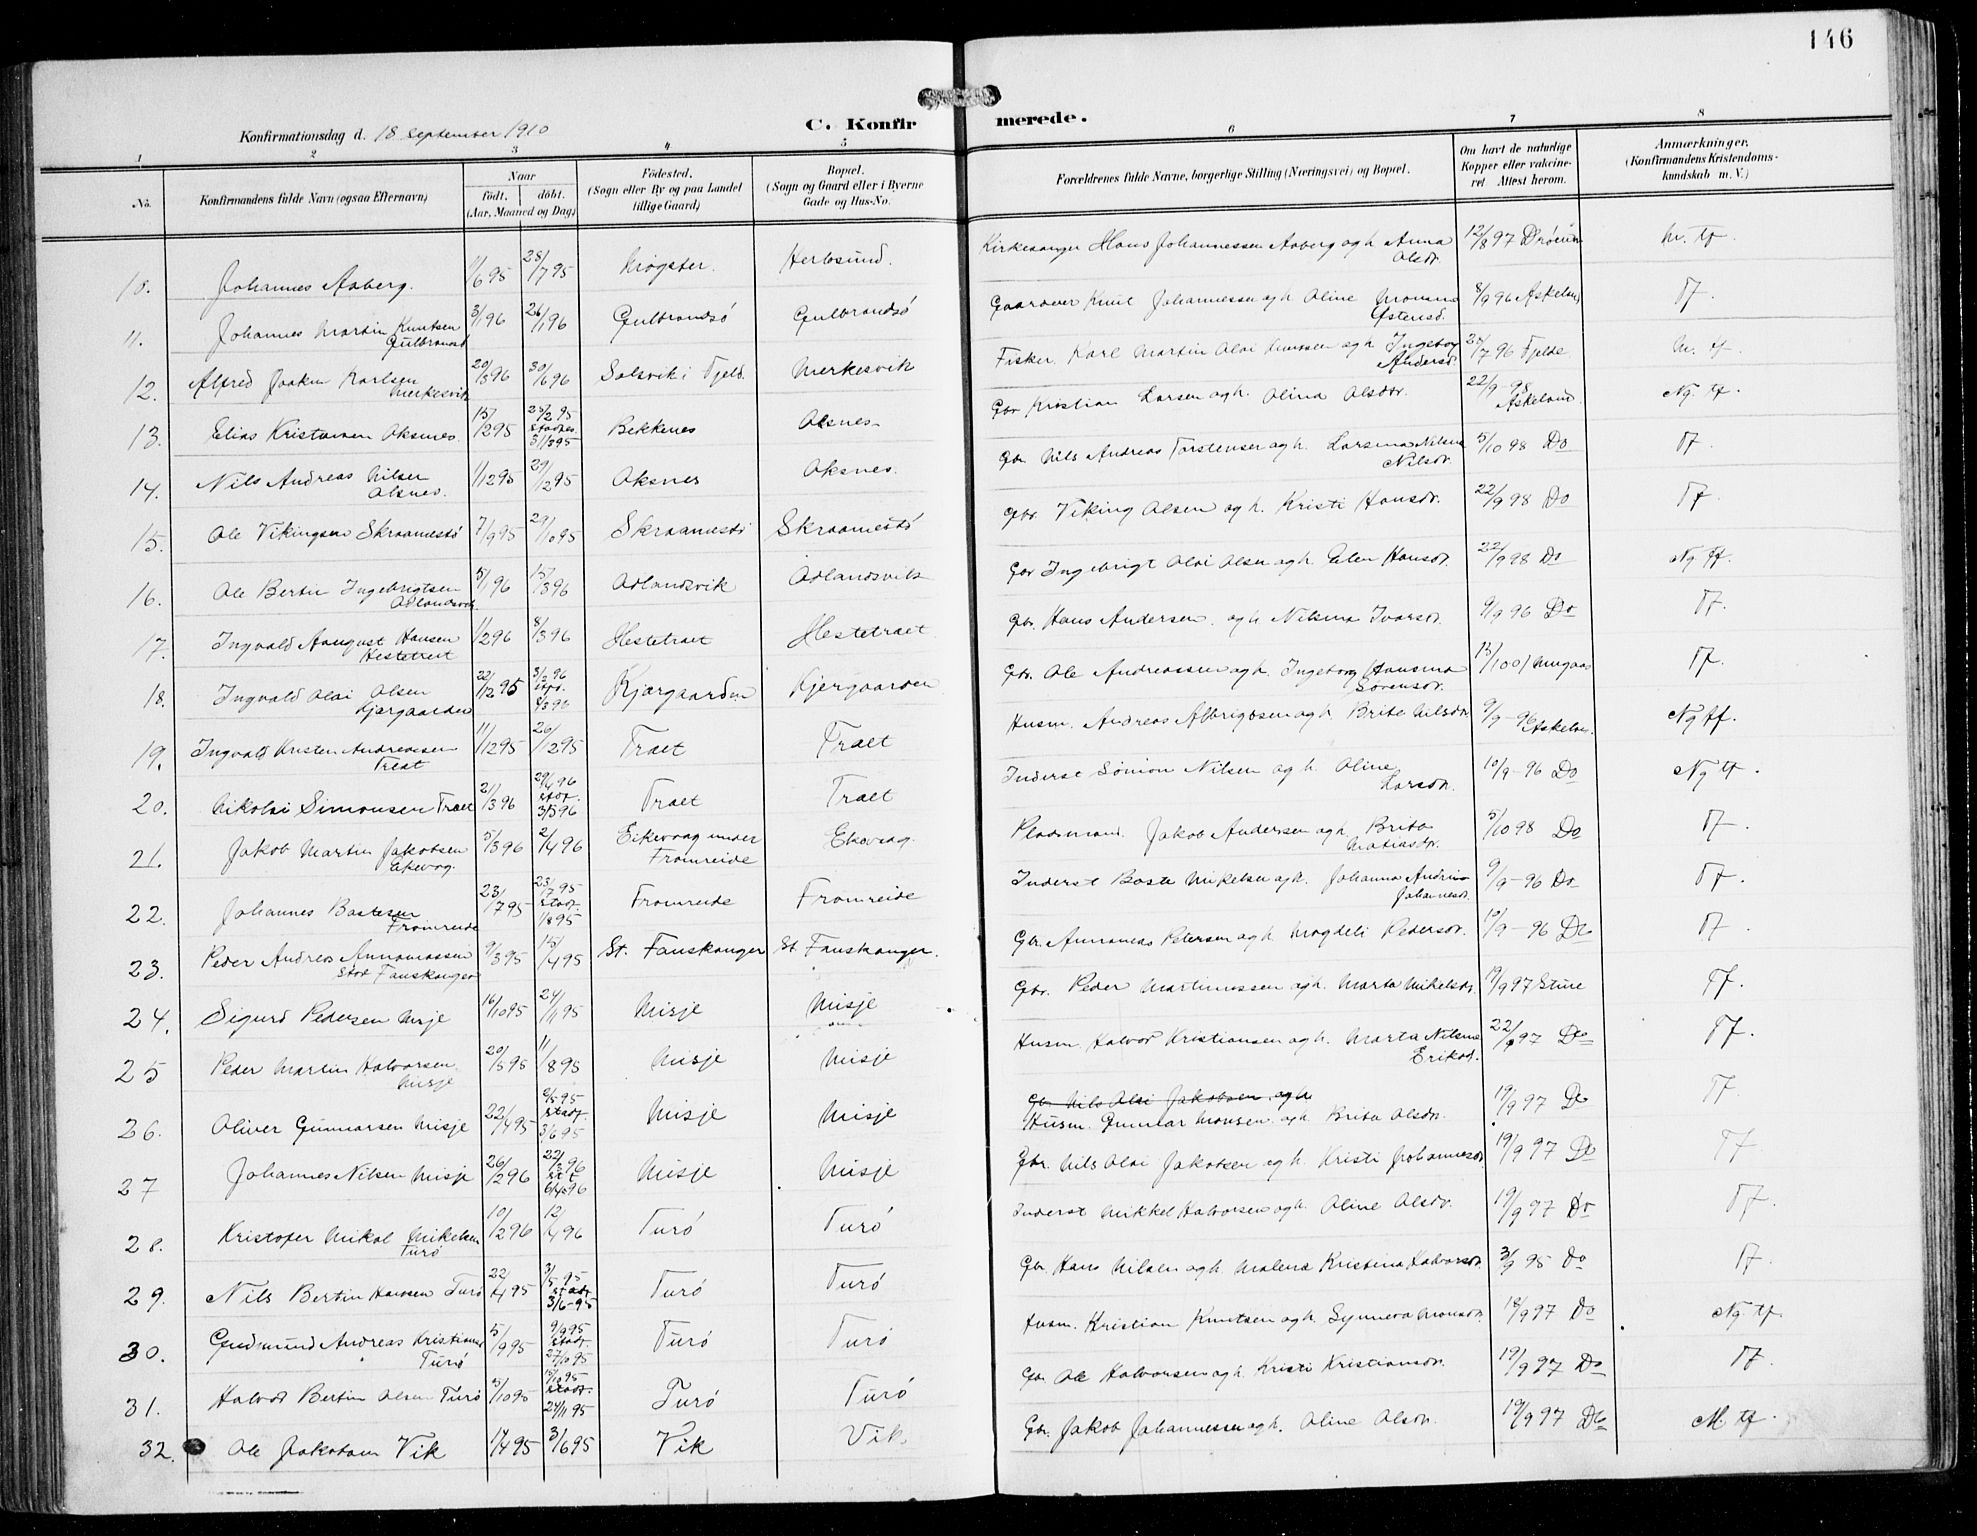 146
Konfirmationsdag d. 18 September 1910
C. Konfirmerede.
1 2 3 4 5 6 7 8
No.
Konfirmandens fulde Navn (ogsaa Efternavn)
Naar
födt. döbt.
(Aar, Maaned og Dag)
Födested.
(Sogn eller By og paa Landet
tillige Gaard)
Bopæl.
(Sogn og Gaard eller i Byerne
Gade og Hus-No.
Forældrenes fulde Navne, borgerlige Stilling (Næringsvei) og Bopæl.
Om havt de naturlige
Kopper eller vakcine-
ret Attest herom.
Anmærkninger.
(Konfirmandens Kristendoms-
kundskab m. V.)
10. Johannes Aaberg. 11/6 95 28/7 95 Møgster. Herlosund. Kirkesanger Hans Johannessen Aaberg og h. Anna Olsdr. 12/8 97 m. tf.
11. Johannes Martin Knutsen Gulbrandsö 3/1 96 26/1 96 Gulbrandsö Gulbrandsö Gaardbr Knut Johannessen og h. Oline Monsine 8/9 96 Tf.
12. Alfred Joakim Karlsen Merkesvik 20/3 96 30/6 96 Solsvik i Fjeld. Merkesvik Fisker Karl Martin Olai og h. Ingeborg Andersd. 7 96 Fjelde.
13. Elias Kristiansen Oksnes. 15/2 95 stadf. 31/3 95 Bekkenes Oksnes Gbr Kristian Larsen og h. Olina Olsdtr. 22/9-98 Askeland. Ng. tf.
14. Nils Andreas Nilsen Oksnes. 1/12 95 29/12 95 Oksnes Oksnes. Gbr. Nils Andreas Torstensen og h. Larsina Nilsine Nilsdr. 5/10 98 Do Tf.
15. Ole Vikingsen Skraamestö 7/9 95 29/10 95 Skraamestö Skraamestö Gbr. Viking Olsen og h. Kristi Hansdr. 22/9 98 Do Tf.
16. Ole Bertin Ingebrigtsen Adlandsvik 5/1 96 15/3 96 Adlandsvik Adlandsvik Gbr Ingebrigt Olai Olsen og h. Elen Hansdr. 22/9 98 Do Ng tf.
17. Ingvald August Hansen Hestetræet 1/2 96 8/3 96 Hestetræet Hestetræet Gbr. Hans Andersen og h. Nilsina Ivarsdr. 9/9 96 Do Tf.
18. Ingvald Olai Olsen Kjærgaarden 22/12 95 3/2 96 stdf. Kjærgaarden Kjergaarden Gbr. Ole Andreassen og h. Ingeborg Hansina Sörensdr. 13/10 01 Tf.
19. Ingvald Kristen Andreassen Træet 11/12 95 26/12 95 Træet Træet Husm. Andreas Albrigtsen og h. Brite Nilsdr. 9/9-96 Ng tf.
20. Nikolai Simonsen Træet 21/3 96 29/4 96 stadf. 31/5 96 Træet Træet Inderst Simon Nilsen og h. Oline Larsdr. 10/9-96 Do Ng tf.
21. Jakob Martin Jakobsen Ekevog. 5/3 96 2/4 96 Eikevaag under Fromreide Ekevaag. Pladsmand. Jakob Andersen og h. Brita Matiasdr. 5/10 98 Do Tf.
22. Johannes Bastesen Fromreide 23/7 95 23/7 95 stadf. 1/8 95 Fromreide Fromreide Inderst Baste Mikelsen og h. Johanna Andrina Johannesd. 9/9-96 Do Tf.
23. Peder Andreas Annanassen Stor Fanskanger 9/3 95 15/4 95 St. Fanskanger St. Fanskanger. Gbr. Annanias Petersen og h. Magdeli Pedersdr. 10/9-96 Do Tf.
24. Sigurd Pedersen Misje 16/10 95 24/11 95 Misje Misje Gbr. Peder Martinussen og h. Marta Mikelsdr. 19/9 97 Sture Tf.
25 Peder Martin Halvorsen Misje 20/5 95 11/8 95 Misje Misje Husm. Halvor Kristiansen og h. Marta Nilsine Eriksd. 22/9 97 Do Tf.
26. Oliver Gunnarsen Misje 22/4 95 6/5 95 stadf. 3/6 95 Misje Misje Gbr Nils Olai Jakobsen og h
Husm. Gunnar Monsen og h. Brita Olsdr. 19/9 97 Do Tf
27 Johannes Nilsen Misje 26/2 96 22/3 96 st.f. 6/4 96 Misje Misje Gbr. Nils Olai Jakobsen og h. Kristi Johannesdr. 19/9 97 Do Tf
28. Kristofer Mikal Mikelsen Turö 10/2 96 12/4 96 Turö Turö Inderst Mikkel Halvorsen og h. Oline Olsdr. 19/9 97 Do Tf.
29. Nils Bertin Hansen Turö 22/4 95 3/5 95 stadf. 3/6-95 Turö Turö Gbr. Hans Nilsen og h Malene Kristina Halvorsdr. 3/9 95 Do Tf.
30. Gudmund Andreas Kristiansen Turö 5/9 95 9/9 95 stadf. 27/10 95 Turö Turö Husm. Kristian Knutsen og h. Synneva Monsdr. 18/9 97 Do Ng tf.
31. Halvor Bertin Olsen Turö 5/10 95 15/10 95 stadf. 24/11 95 Turö Turö Gbr. Ole Halvorsen og h. Kristi Kristiansdr. 19/9 97 Do Tf.
32. Ole Jakobsen Vik 17/4 95 3/6 95 Vik Vik. Gbr. Jakob Johannessen og h. Oline Olsdr. 19/9 97 Do M tf.